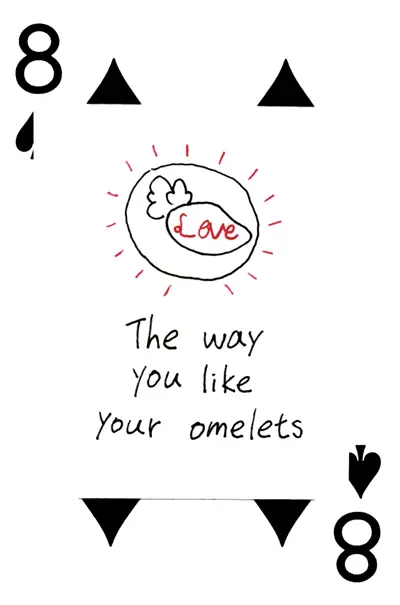 8
Love
The way
you like
your omelets
8